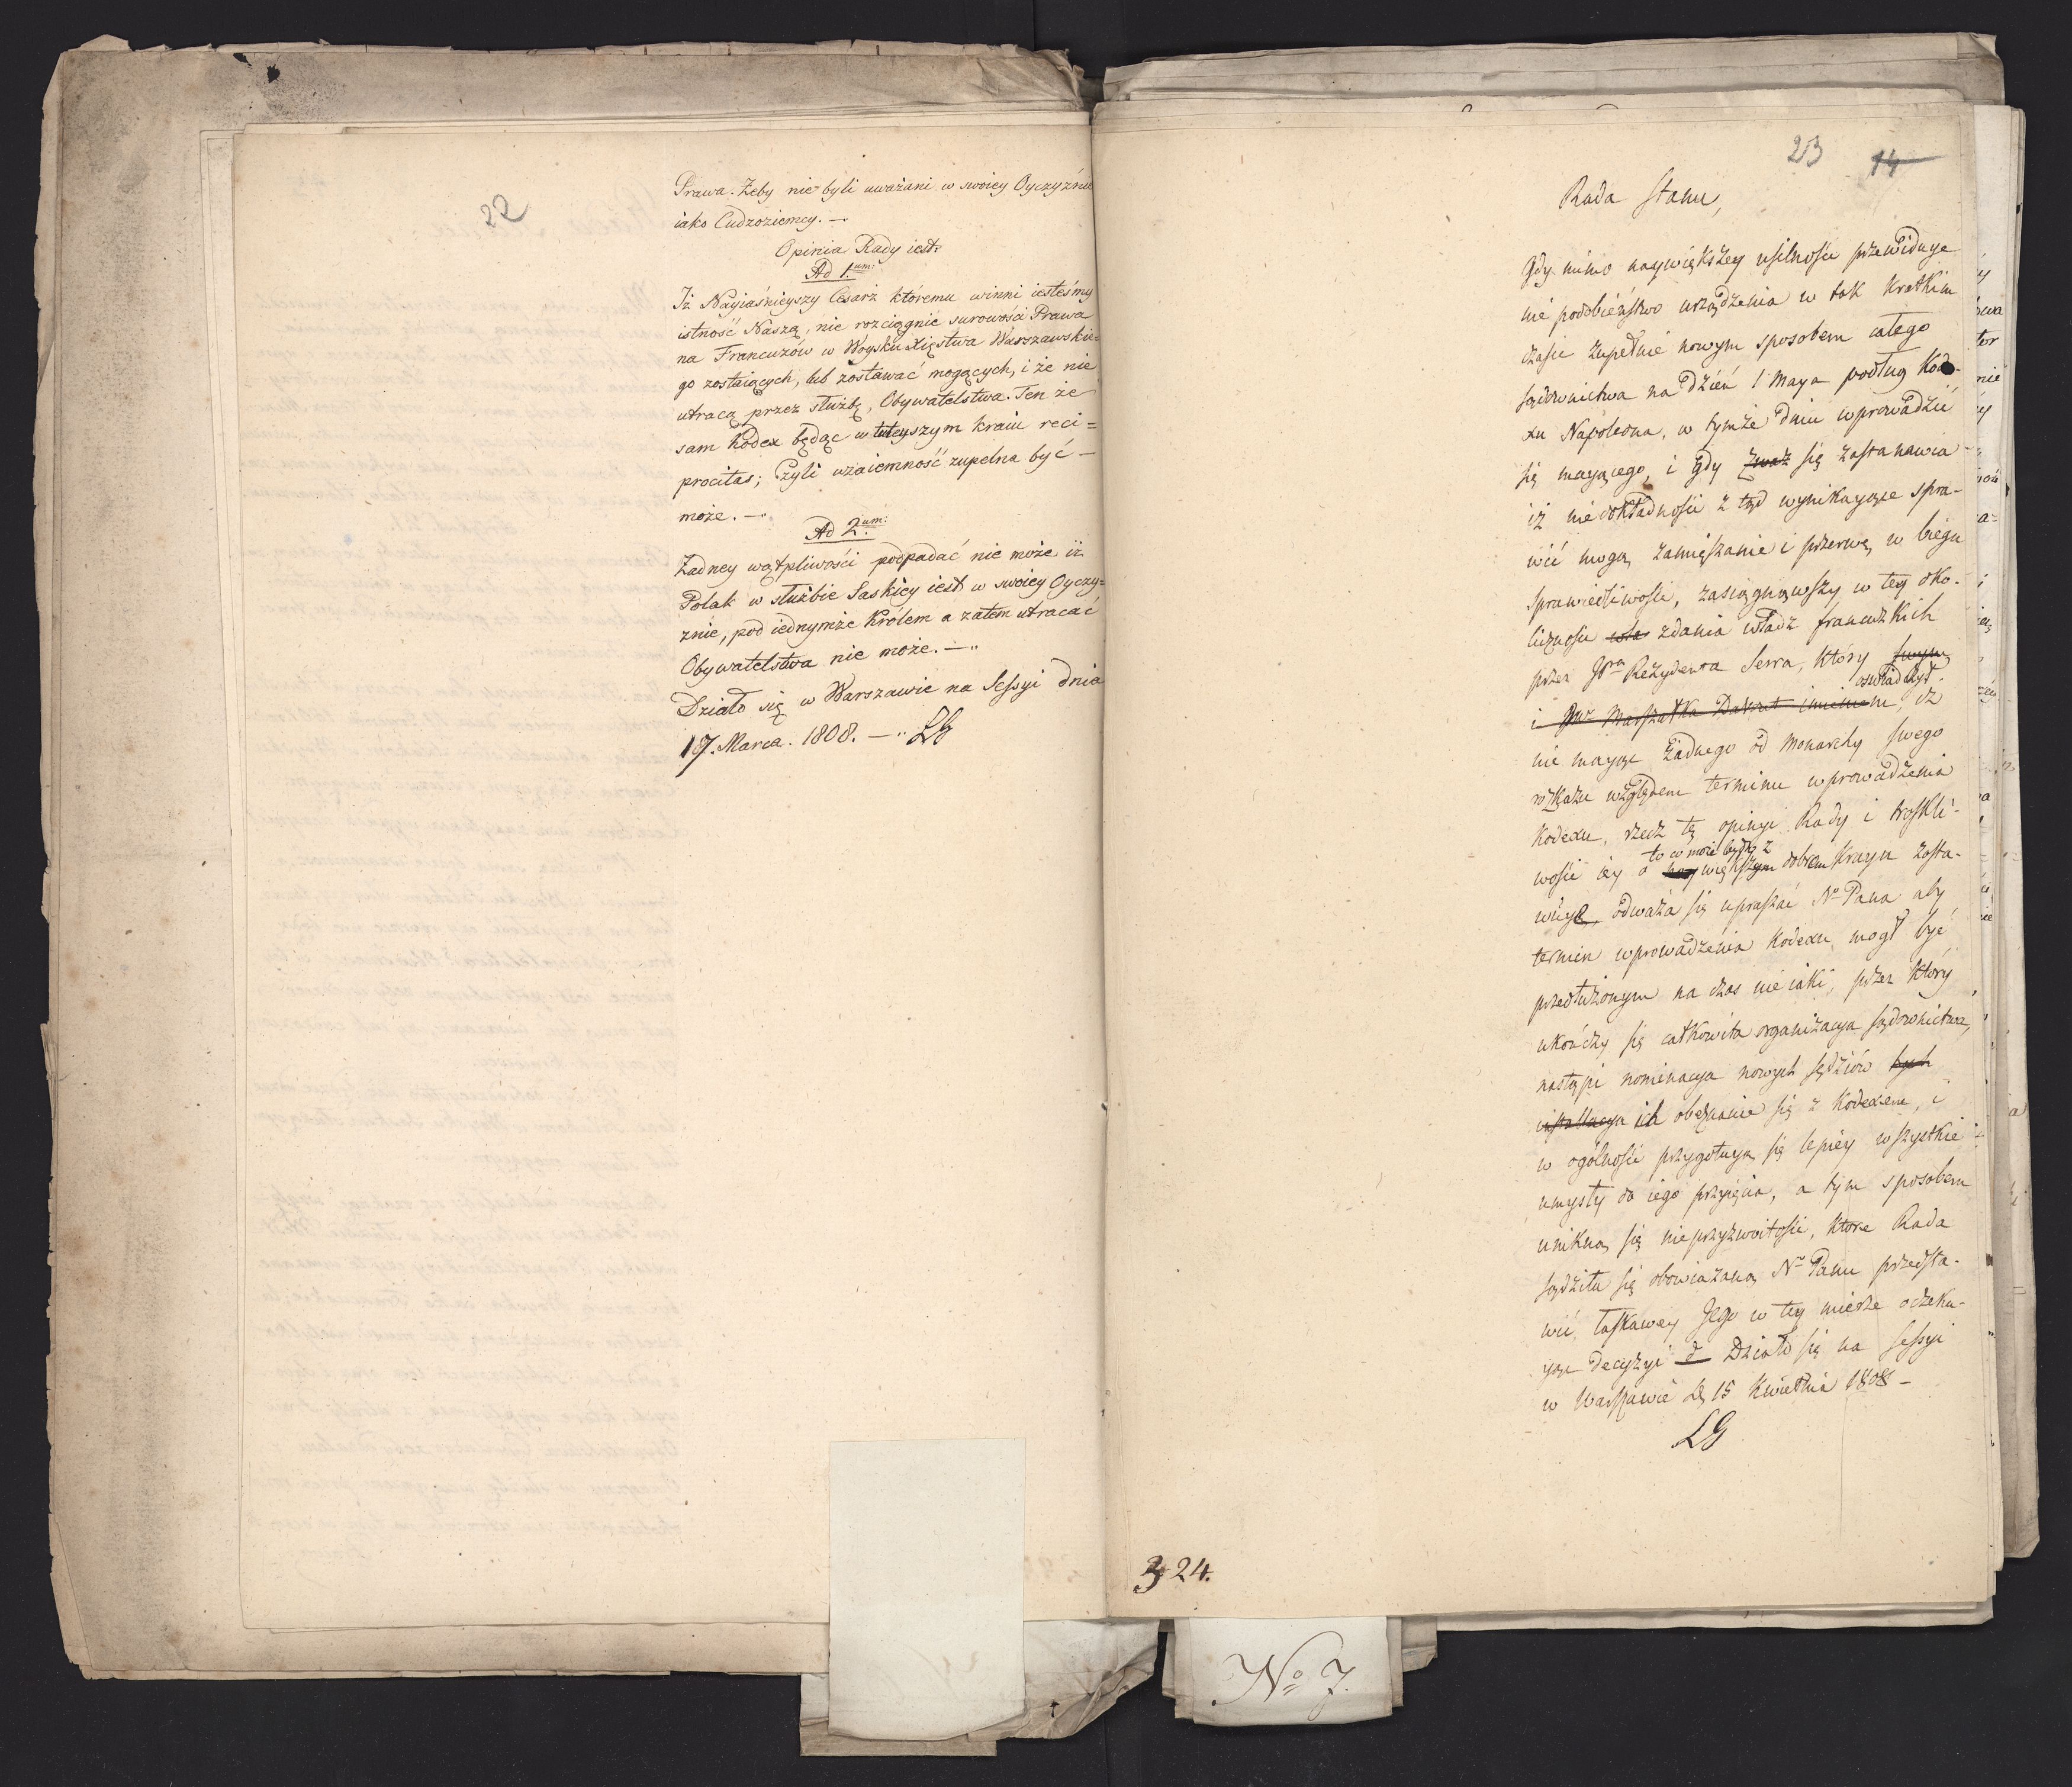 22
Prawa. Żeby nie byli uważani w swoiey Oyczyźnie
iako Cudzoziemcy. —
Opinia Rady iest:
Ad 1.um:
Iż Nayiaśnieyszy Cesarz któremu winni iesteśmy
istność Naszą, nie rozciągnie surowości Prawa
na Francuzów w Woysku Xięstwa Warszawskie=
go zostaiących, lub zostawać mogących, i że nie
utracą przez służbę, Obywatelstwa. Ten że
sam Kodex będąc w tuteyszym kraiu reci=
procitas; Czyli wzaiemność zupełna być —
może. —
Ad 2.um:
Żadney wątpliwości podpadać nie może iż
Polak w służbie Saskiey iest w swoiey Oyczy=
znie, pod iednymże Królem a zatem utracać
Obywatelstwa nie może. —
Działo się w Warszawie na Sessyi dnia
17. Marca. 1808. — LG
23 14
Rada Stanu,
Gdy mimo naywiększey usilności przewiduje
nie podobieństwo urządzenia w tak krotkim
czasie zupełnie nowym sposobem całego
sądownictwa na dzień 1 Maya podług Kod-
xu Napoleona, w tymże dniu wprowadzić
się mającego, i gdy zważ się zastanawia
iż niedokładności z tąd wynikające spra-
wić mogą zamięszanie i przerwę w biegu
sprawiedliwości, zasiągnąwszy w tey oko-
liczności zdania władz francuzkich
przez JPna Rezydenta Serra, który swym
oświadczył
i Marszałka Davout imieniem, iż
nie mając żadnego od Monarchy swego
rozkazu względem terminu wprowadzenia
Kodexu, rzecz tę opinyi Rady i troskli-
to co może bydź z
wości iey o naywiększym dobrem Kraju zosta-
wuje, odważa się upraszać N. Pana aby
termin wprowadzenia Kodexu mogł być
przedłużonym na czas nieiaki, przez który
ukończy się całkowita organizacya sądownictwa,
nastąpi nominacya nowych sędziów tych
installacya ich obeznanie się z Kodexem, i
w ogólności przygotują się lepiey wszystkie
umysły do iego przyięcia, a tym sposobem
unikną się nieprzyzwoitości, które Rada
sądziła się obowiązaną N. Panu przedsta-
wić, łaskawey Jego w tey mierze oczeku-
jąc decyzyi d Działo się na sessyi
w Warszawie d. 15 Kwietnia 1808 —
LG
324.
No 7.